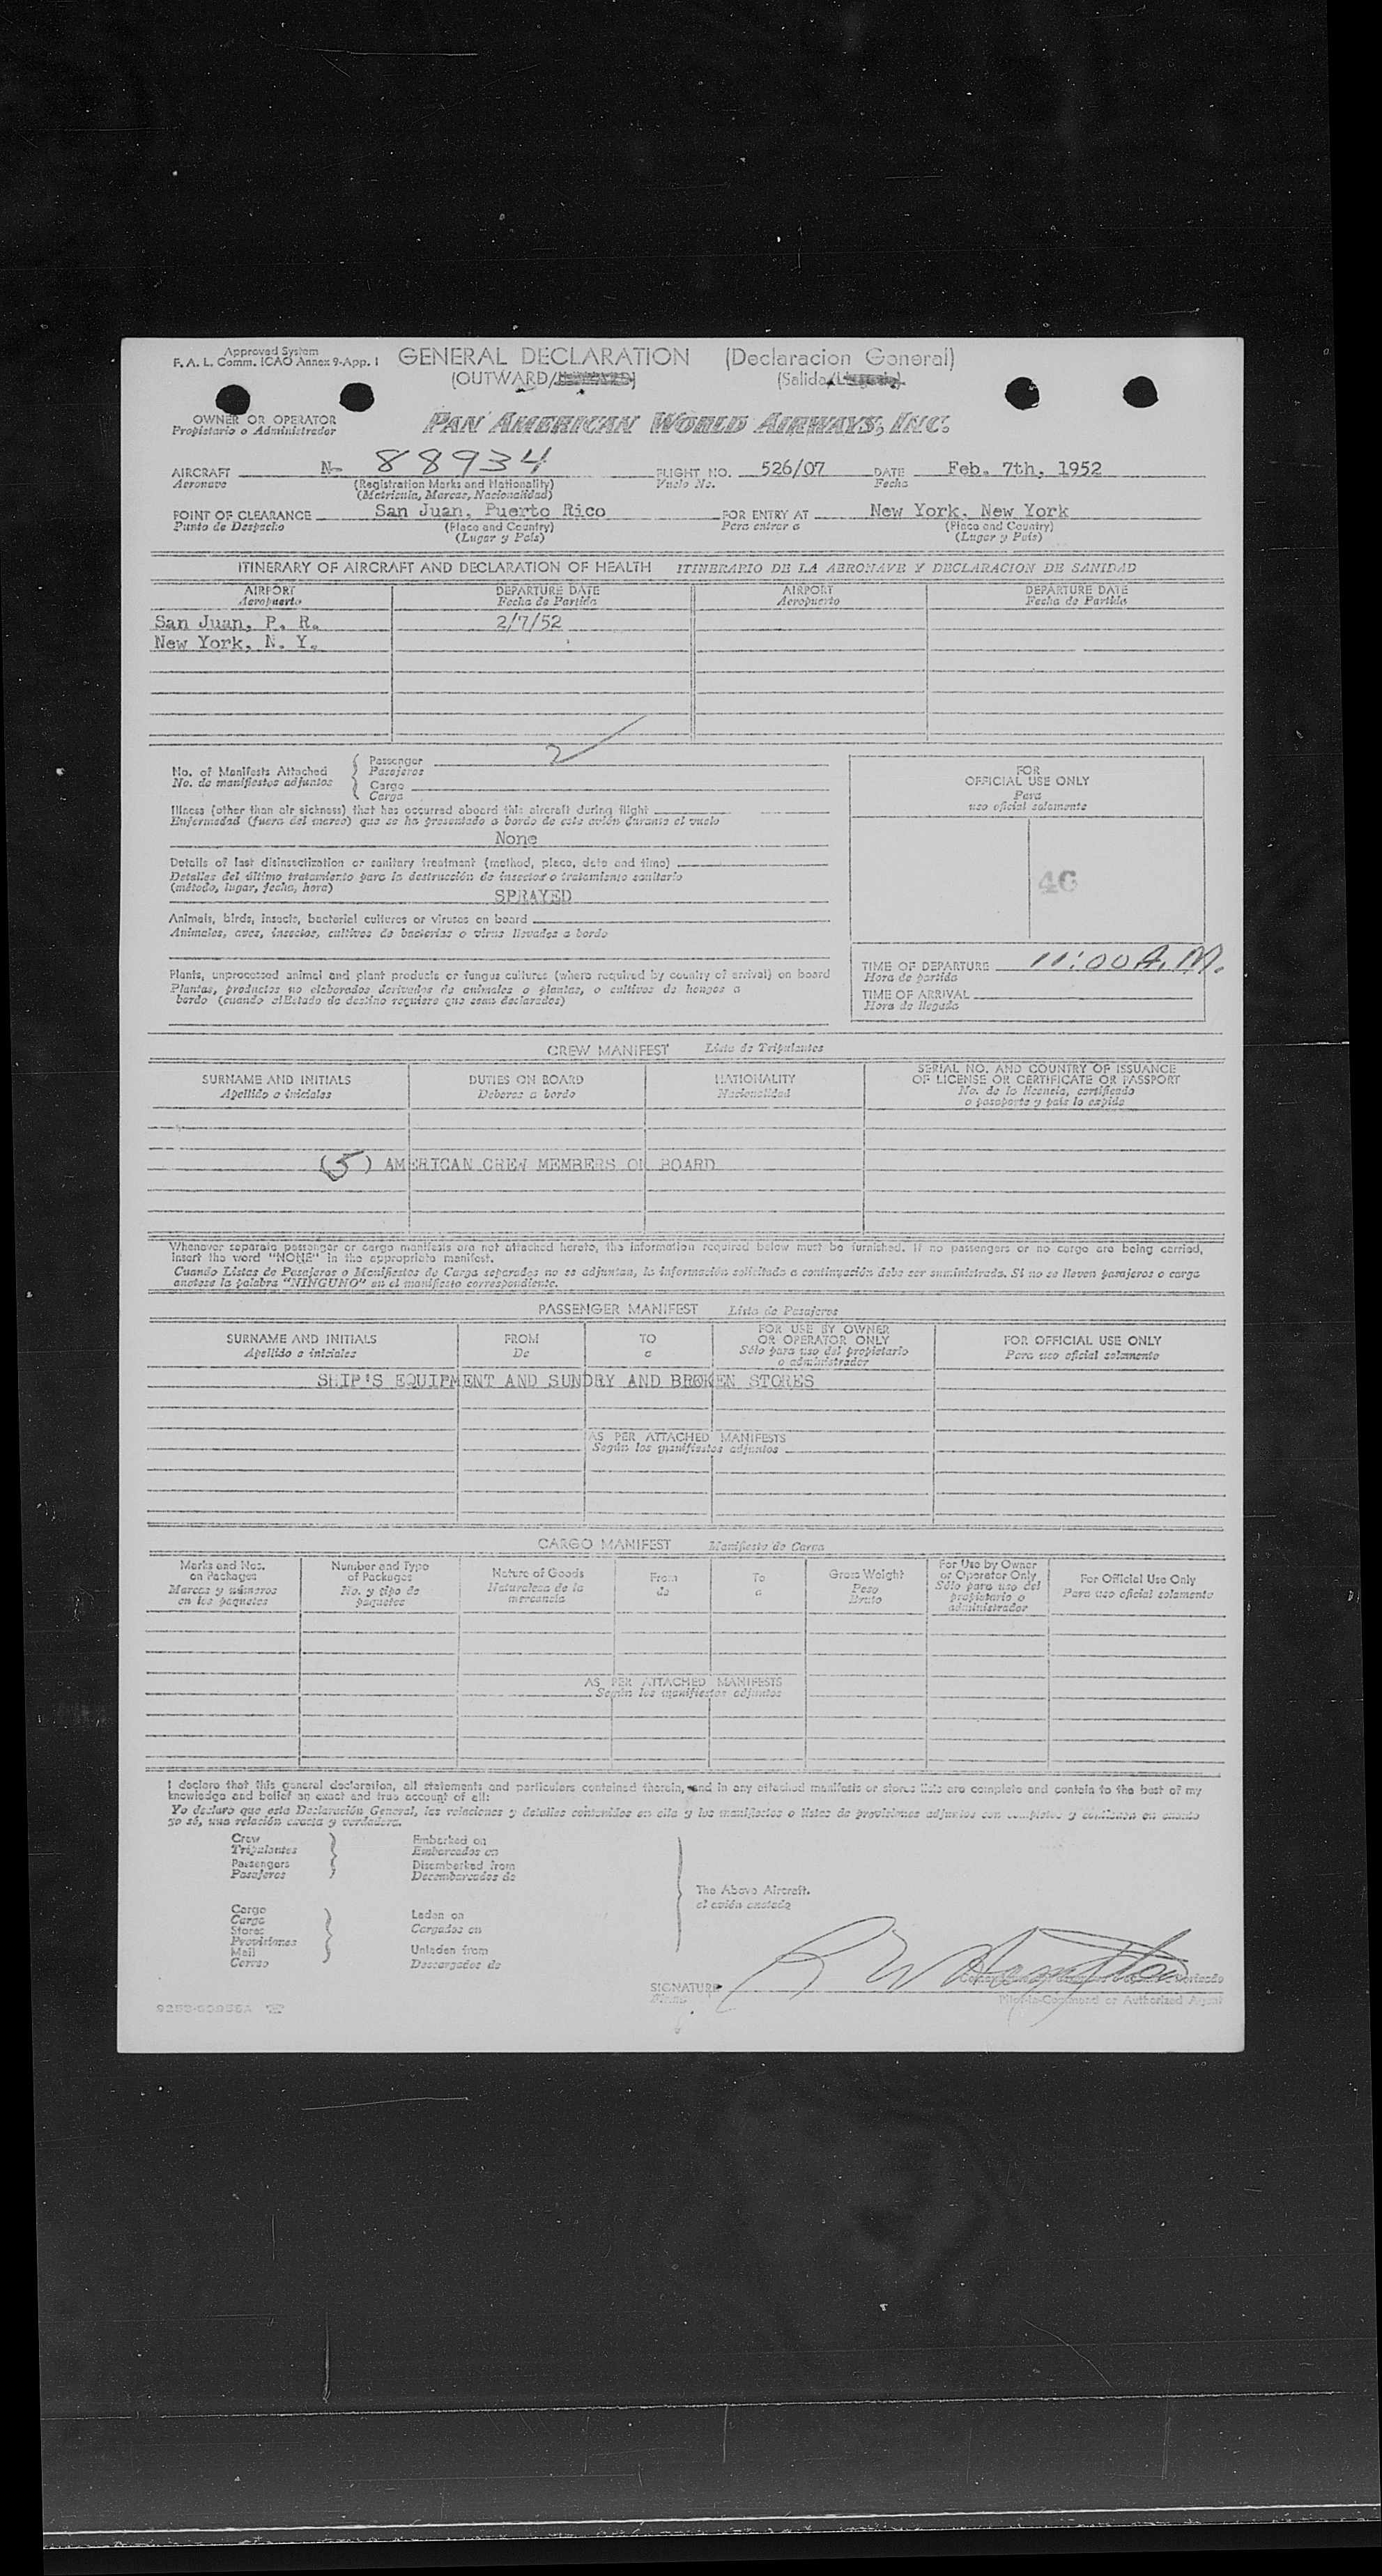 Approved System
F. A. L. Comm. ICAO Annex 9-App. I
GENERAL DECLARATION (Declaracion General)
(OUTWARD/ (Salida/
OWNER OR OPERATOR
Propietario o Administrador
PAN AMERICAN WORLD AIRWAYS, INC.
AIRCRAFT N- 88934 FLIGHT NO. 526/07 DATE Feb. 7th, 1952
Aeronave (Registration Marks and Nationality) Vuelo No. Fecha
(Matricula, Marcas, Nacionalidad)
POINT OF CLEARANCE San Juan, Puerto Rico FOR ENTRY AT New York, New York
Punto de Despacho (Place and Country) Para entrar a (Place and Country)
(Lugar y País) (Lugar y País)
ITINERARY OF AIRCRAFT AND DECLARATION OF HEALTH ITINERARIO DE LA AERONAVE Y DECLARACION DE SANIDAD
AIRPORT DEPARTURE DATE AIRPORT DEPARTURE DATE
Aeropuerto Fecha de Partida Aeropuerto Fecha de Partida
San Juan, P. R. 2/7/52
New York, N. Y.
No. of Manifests Attached
No. de manifiestos adjuntos
Passenger 2
Pasajeros
Cargo
Carga
Illness (other than air sickness) that has occurred aboard this aircraft during flight
Enfermedad (fuera del mareo) que se ha presentado a bordo de este avión durante el vuelo
None
Details of last disinsectization or sanitary treatment (method, place, date and time)
Detalles del último tratamiento para la destrucción de insectos o tratamiento sanitario
(método, lugar, fecha, hora)
SPRAYED
Animals, birds, insects, bacterial cultures or viruses on board
Animales, aves, insectos, cultivos de bacterias o virus llevados a bordo
Plants, unprocessed animal and plant products or fungus cultures (where required by country of arrival) on board
Plantas, productos no elaborados derivados de animales o plantas, o cultivos de hongos a
bordo (cuando elEstado de destino requiere que sean declarados)
FOR
OFFICIAL USE ONLY
Para
uso oficial solamente
TIME OF DEPARTURE 11:00 A.M.
Hora de partida
TIME OF ARRIVAL
Hora de llegada
CREW MANIFEST Lista de Tripulantes
SURNAME AND INITIALS DUTIES ON BOARD NATIONALITY SERIAL NO. AND COUNTRY OF ISSUANCE
OF LICENSE OR CERTIFICATE OR PASSPORT
Apellido e iniciales Deberes a bordo Nacionalidad No. de la licencia, certificado
o pasaporte y país lo expide
(5) AMERICAN CREW MEMBERS ON BOARD
Whenever separate passenger or cargo manifests are not attached hereto, the information required below must be furnished. If no passengers or no cargo are being carried,
insert the word "NONE" in the appropriate manifest.
Cuando Listas de Pasajeros o Manifiestos de Carga separados no se adjuntan, la información solicitada a continuación debe ser suministrada. Si no se lleven pasajeros o carga
anotese la palabra "NINGUNO" en el manifiesto correspondiente.
PASSENGER MANIFEST Lista de Pasajeros
SURNAME AND INITIALS FROM TO FOR USE BY OWNER
OR OPERATOR ONLY FOR OFFICIAL USE ONLY
Apellido e iniciales De a Sólo para uso del propietario
o administrador Para uso oficial solamente
SHIP'S EQUIPMENT AND SUNDRY AND BROKEN STORES
AS PER ATTACHED MANIFESTS
Según los manifiestos adjuntos
CARGO MANIFEST Manifiesto de Carga
Marks and Nos.
on Packages
Marcas y números
en los paquetes
Number and Type
of Packages
No. y tipo de
paquetes
Nature of Goods
Naturaleza de la
mercancia
From
de
To
a
Gross Weight
Peso
Bruto
For Use by Owner
or Operator Only
Sólo para uso del
propietario o
administrador
For Official Use Only
Para uso oficial solamente
AS PER ATTACHED MANIFESTS
Según los manifiestos adjuntos
I declare that this general declaration, all statements and particulars contained therein, and in any attached manifests or stores lists are complete and contain to the best of my
knowledge and belief an exact and true account of all:
Yo declaro que esta Declaración General, las relaciones y detalles contenidos en ella y los manifiestos o listas de provisiones adjuntos son completos y contienen en cuanto
yo sé, una relación exacta y verdadera.
Crew
Tripulantes
Passengers
Pasajeros
Embarked on
Embarcados en
Disembarked from
Desembarcados de
Cargo
Carga
Stores
Provisiones
Mail
Correo
Laden on
Cargados en
Unladen from
Descargados de
The Above Aircraft.
el avión anotado
SIGNATURE
Pilot-in-Command or Authorized Agent